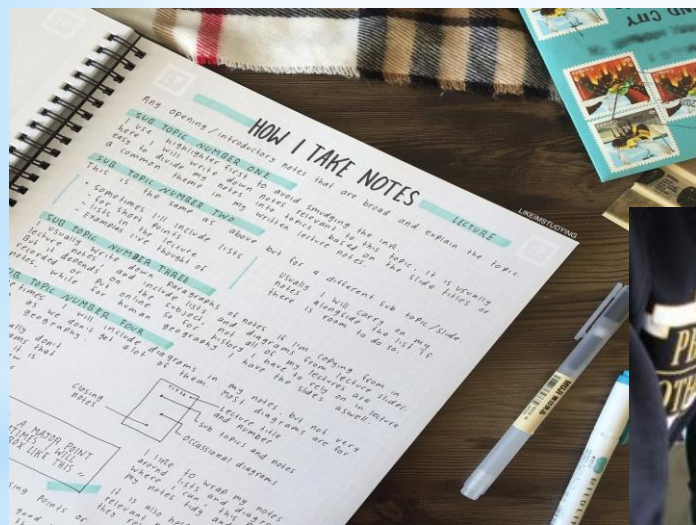 HOW I TAKE NOTES
LECTURE
Any opening/introductory notes that are broad and explain the topic.
SUB TOPIC NUMBER ONE
I use highlighter first to avoid smudging the ink.
here I will write down notes relevant to this topic. It is usually
easy to divide my notes into topics based on the slide titles or
a common theme in my written lecture notes.
SUB TOPIC NUMBER TWO
This is the same as above but for a different sub topic/slide.
- sometimes I'll include lists
- for short points
- lists in the lecture
- Examples I've thought of
Usually I will carry on my
notes alongside the list is
there is room to do so.
SUB TOPIC NUMBER THREE
usually write down paragraphs of notes if i'm copying from in
lecture notes and include lists and diagrams from lecture slides.
But it depends on the subject
recorded or put online so for history I have to rely on in lecture
notes, while for human geography I have the slides aswell.
SUB TOPIC NUMBER FOUR
we will include diagrams in my notes, but not very
we don't get alot of them. Most diagrams are for
geography
closing
notes
Title
Lecture title
and number
sub topics and notes
Occassional diagrams
A MAJOR POINT
WILL
BOX LIKE THIS ~
I like to wrap my notes
around lists and diagrams
where I can, this
my notes tidy and
It is also
relevant
LIKEIMSTUDYING
CITY
MUJI